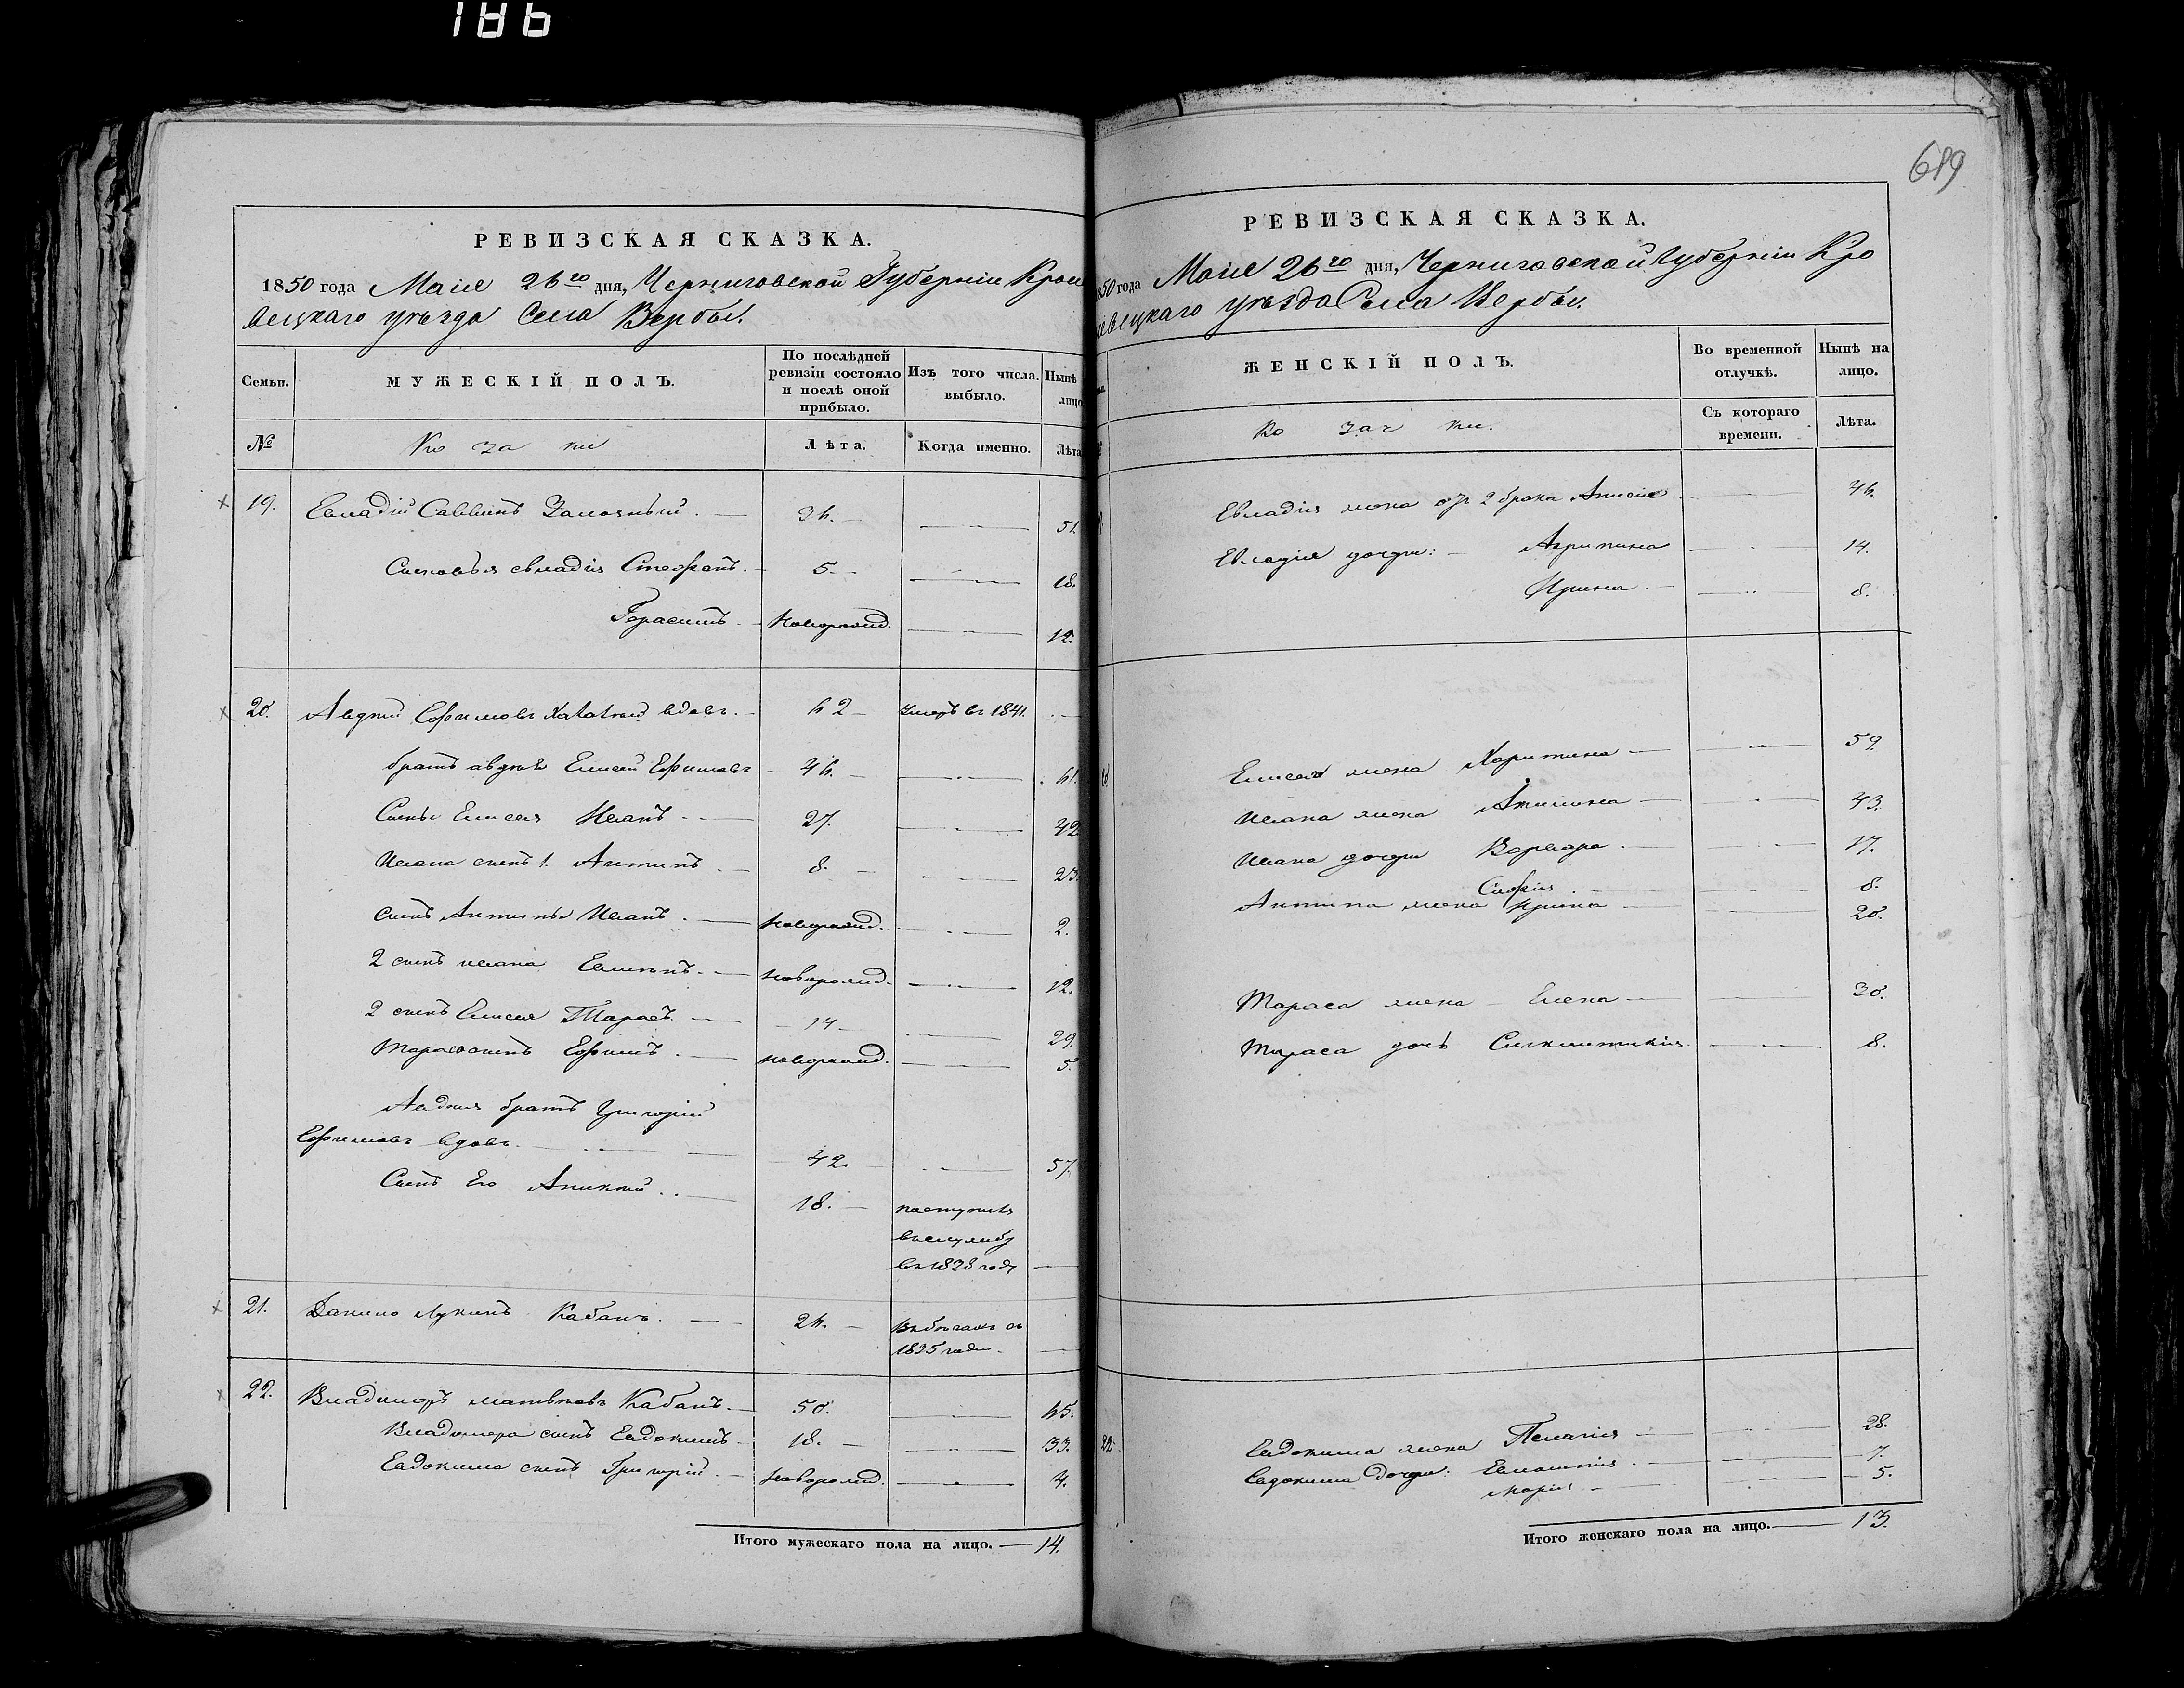 186
689
РЕВИЗСКАЯ СКАЗКА.
1850 года Маія 26го дня, Черниговской Губерніи Кроле
вецкаго уѣзда Села Вербы.
Семьи.
МУЖЕСКІЙ ПОЛЪ.
По послѣдней ревизіи состояло и послѣ оной прибыло.
Изъ того числа выбыло.
Нынѣ лицо
№
Козаки
Лѣта.
Когда именно.
Лѣта
19. Евладій Саввинъ 36. 51.
Сыновья евладія Стефанъ. 5. 18.
Герасимъ новорожд. 12.
20. Авдій Ефимовъ вдовъ. 62 умеръ въ 1841.
братъ авдія Елисей Ефимовъ 46. 61.
Сынъ Елисея Иванъ 27. 42
Ивана сынъ 1. Антипъ 8. 23.
сынъ Антипы Иванъ новорожд. 2.
2 сынъ ивана новорожд. 12.
2 сынъ Елисея Тарасъ 14 29.
Тараса сынъ Ефимъ новорожд. 5.
Авдия братъ Григорій
Ефимовъ вдовъ. 42. 57.
Сынъ Его Аникій 18. поступилъ
въ службу
въ 1838 году
21. Данило Лукинъ Кабанъ. 26. Въ бегахъ съ
1835 года
22. Владимеръ матвѣевъ Кабанъ. 50. 65.
Владимера сынъ Евдокимъ 18. 33.
Евдокима сынъ Григорій новорожд. 4.
Итого мужескаго пола на лицо. 14.
РЕВИЗСКАЯ СКАЗКА.
50 года Маія 26го дня, Черниговской Губерніи Кро
левецкаго уѣзда Села Вербы.
ЖЕНСКІЙ ПОЛЪ.
Во временной отлучкѣ.
Нынѣ на лицо.
Козачки.
Съ котораго времени.
Лѣта.
Евладія жена отъ 2 брака Анисія 46.
Евладія дочери: Агрипина 14.
Ирина 8.
Елисея жена Харитина 59
Ивана жена Акилина 43.
Ивана дочери Варвара 17.
Софія 8.
Антипа жена Ирина 20.
Тараса жена Елена 30.
Тараса дочь 8.
22. Евдокима жена Пелагія 28.
Евдокима дочери: 7.
Марія 5.
Итого женскаго пола на лицо. 13.